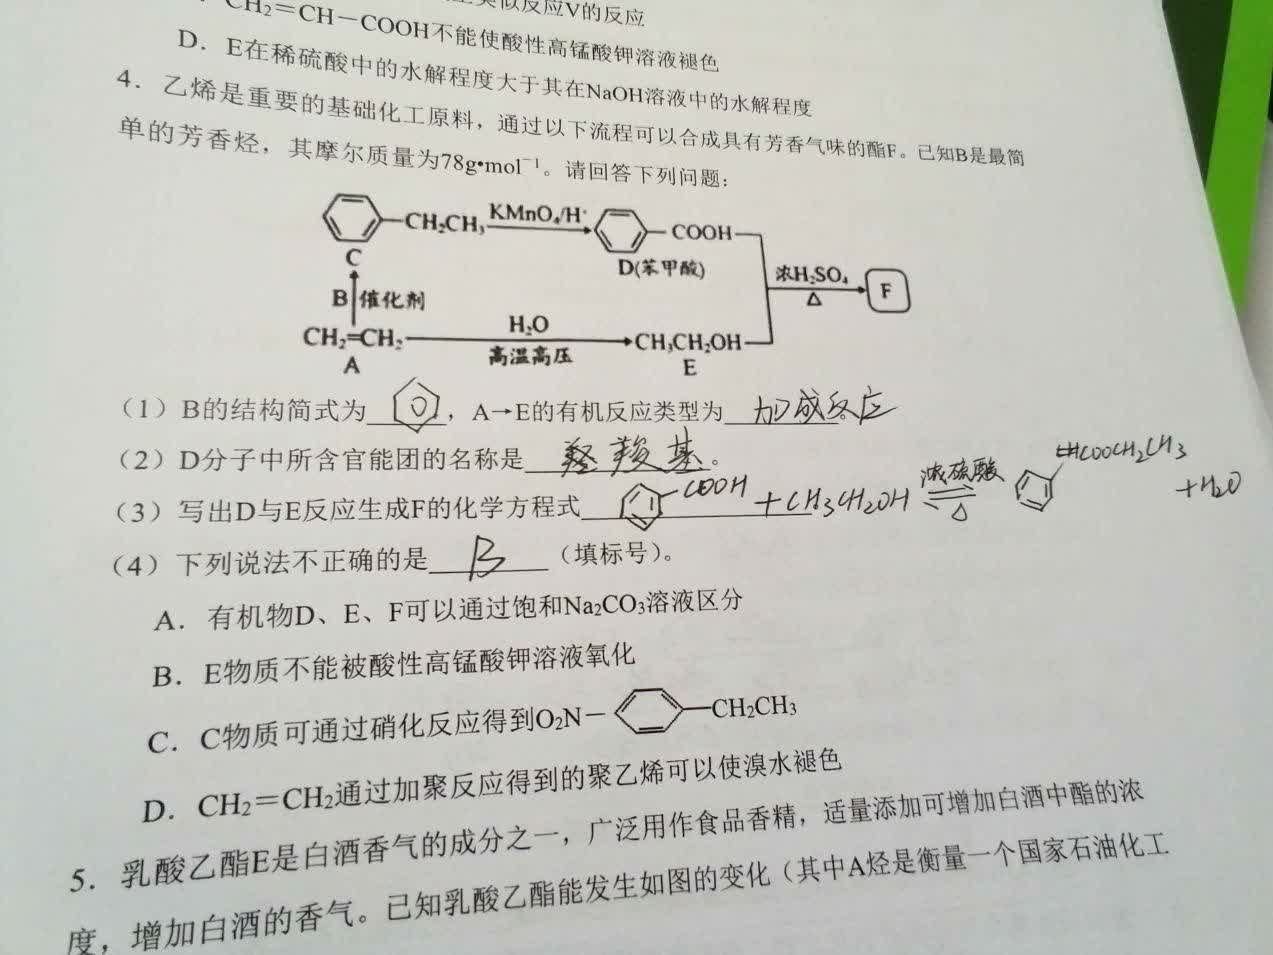 类似反应V的反应
CH₂=CH-COOH不能使酸性高锰酸钾溶液褪色
D. E在稀硫酸中的水解程度大于其在NaOH溶液中的水解程度
4. 乙烯是重要的基础化工原料，通过以下流程可以合成具有芳香气味的酯F。已知B是最简
单的芳香烃，其摩尔质量为78g•mol⁻¹。请回答下列问题：
-CH₂CH₃ KMnO₄/H⁺ -COOH
C D(苯甲酸) 浓H₂SO₄ △ F
B 催化剂
CH₂=CH₂ H₂O 高温高压 CH₃CH₂OH
A E
（1）B的结构简式为，A→E的有机反应类型为 加成反应。
（2）D分子中所含官能团的名称是 羧基。
（3）写出D与E反应生成F的化学方程式 -COOH +CH₃CH₂OH 浓硫酸 ⇌ △ COOCH₂CH₃ +H₂O
（4）下列说法不正确的是 B （填标号）。
A. 有机物D、E、F可以通过饱和Na₂CO₃溶液区分
B. E物质不能被酸性高锰酸钾溶液氧化
C. C物质可通过硝化反应得到O₂N- -CH₂CH₃
D. CH₂=CH₂通过加聚反应得到的聚乙烯可以使溴水褪色
5. 乳酸乙酯E是白酒香气的成分之一，广泛用作食品香精，适量添加可增加白酒中酯的浓
度，增加白酒的香气。已知乳酸乙酯能发生如图的变化（其中A烃是衡量一个国家石油化工